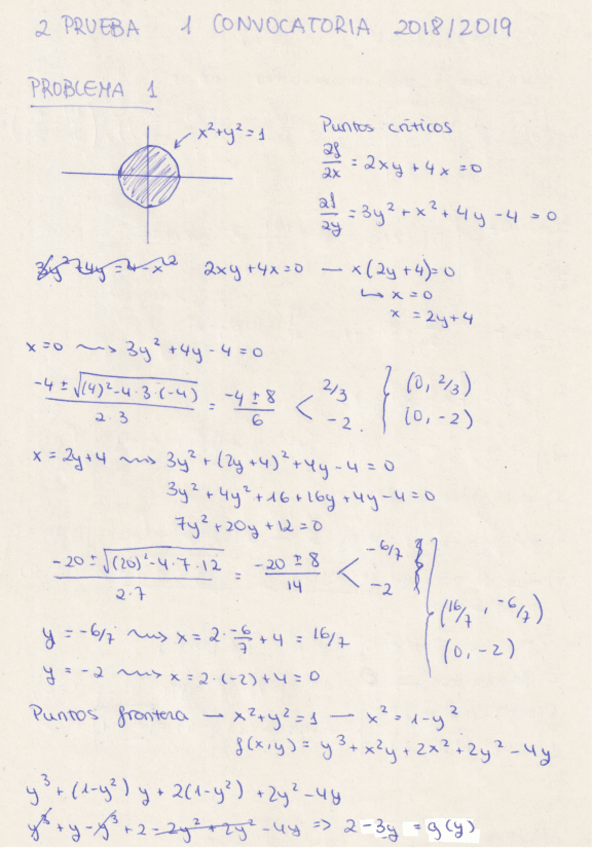 2 PRUEBA 1 CONVOCATORIA 2018/2019
PROBLEMA 1
x²+y²=1
Puntos críticos
∂f/∂x = 2xy + 4x = 0
∂f/∂y = 3y² + x² + 4y - 4 = 0
3y² + 4y = 4 - x²
2xy + 4x = 0 — x(2y+4) = 0
↳ x = 0
x = 2y+4
x=0 ⟿ 3y² + 4y - 4 = 0
(-4 ± √((4)² - 4·3·(-4)))/(2·3) = (-4 ± 8)/6 < 2/3
-2
{ (0, 2/3)
(0, -2)
x = 2y+4 ⟿ 3y² + (2y+4)² + 4y - 4 = 0
3y² + 4y² + 16 + 16y + 4y - 4 = 0
7y² + 20y + 12 = 0
(-20 ± √((20)² - 4·7·12))/(2·7) = (-20 ± 8)/14 < -6/7
-2
y = -6/7 ⟿ x = 2·-6/7 + 4 = 16/7
y = -2 ⟿ x = 2·(-2) + 4 = 0
{ (16/7, -6/7)
(0, -2)
Puntos frontera — x² + y² = 1 — x² = 1 - y²
f(x,y) = y³ + x²y + 2x² + 2y² - 4y
y³ + (1-y²) y + 2(1-y²) + 2y² - 4y
y³ + y - y³ + 2 - 2y² + 2y² - 4y ⇒ 2 - 3y = g(y)